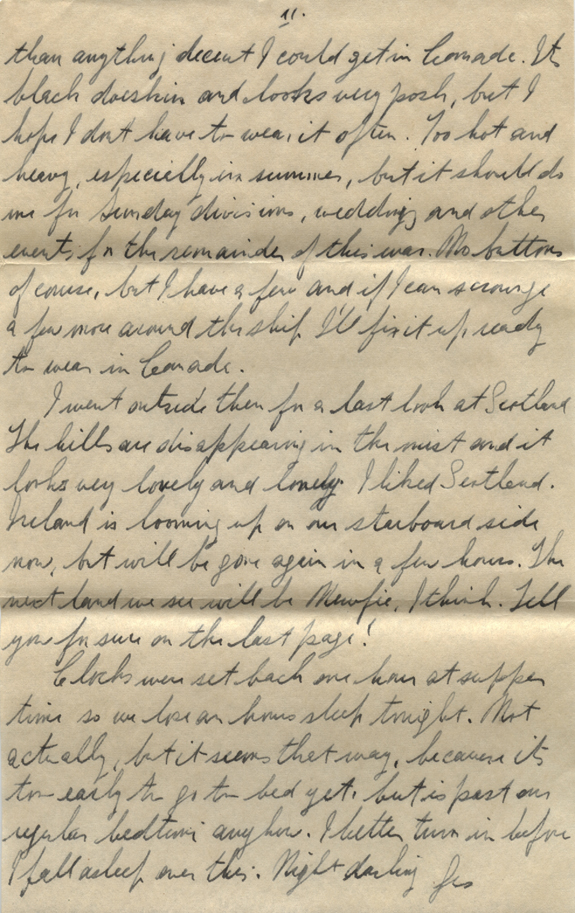 11.
than anything decent I could get in Canada. Its
black doeskin and looks very posh, but I
hope I dont have to wear it often. Too hot and
heavy, especially in summer, but it should do
me for Sunday divisions, weddings and other
events for the remainder of this war. No buttons
of course, but I have a few and if I can scrounge
a few more around the ship I'll fix it up ready
to wear in Canada.
I went outside then for a last look at Scotland
The hills are disappearing in the mist and it
looks very lovely and lonely. I liked Scotland.
Ireland is looming up on our starboard side
now, but will be gone again in a few hours. The
next land we see will be Newfie, I think. Tell
you for sure on the last page!
Clocks were set back one hour at supper
time so we lose an hours sleep tonight. Not
actually, but it seems that way, because its
too early to go to bed yet, but is past our
regular bedtime anyhow. I better turn in before
I fall asleep over this. Night darling